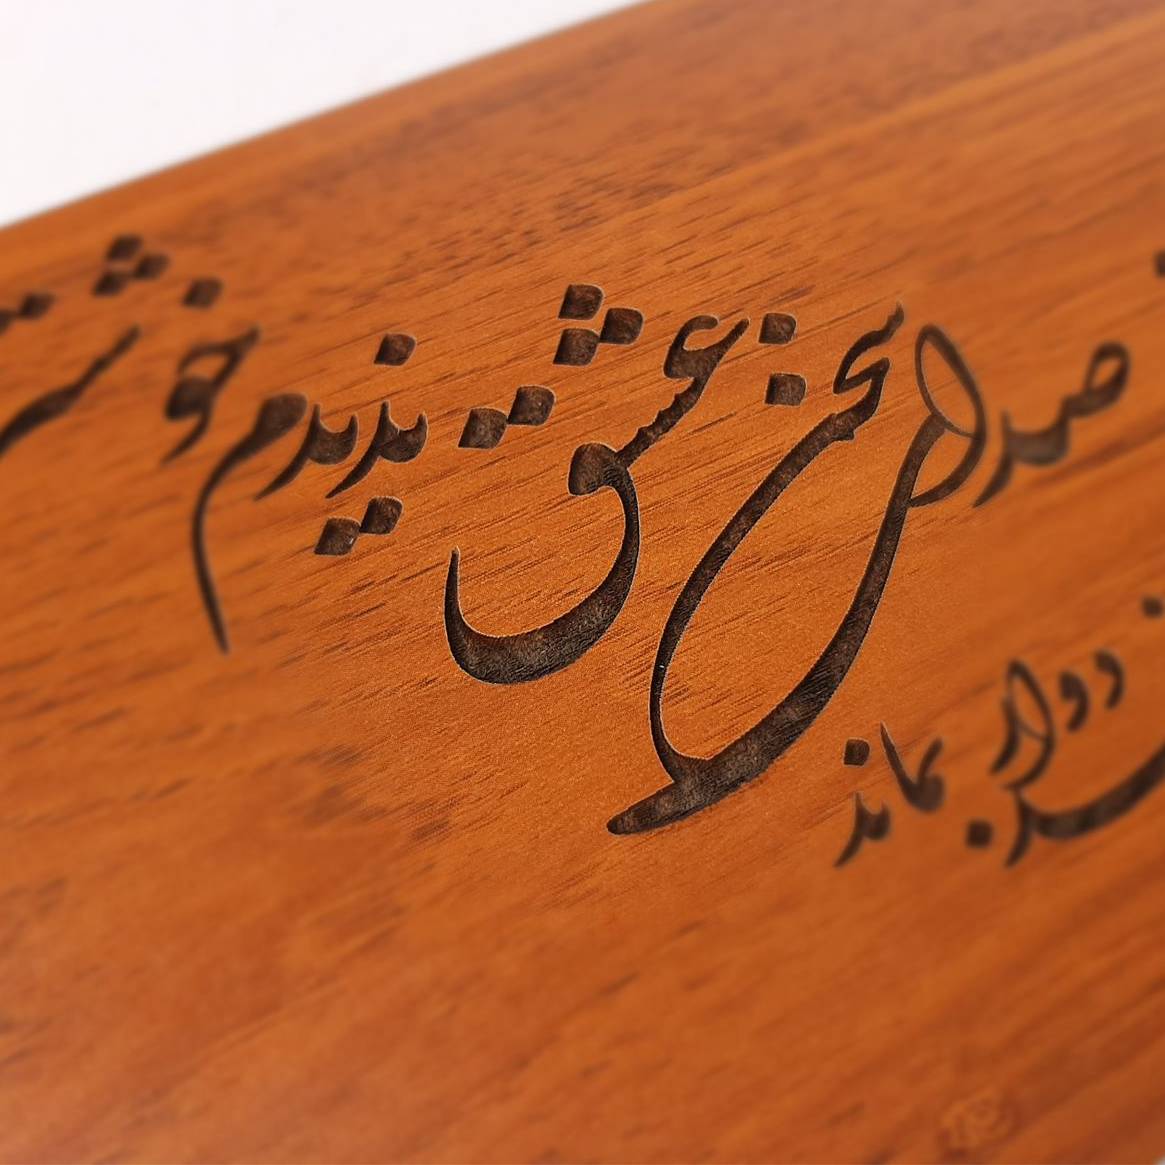 صدای سخن عشق ندیدم خوشتر
دوار بماند